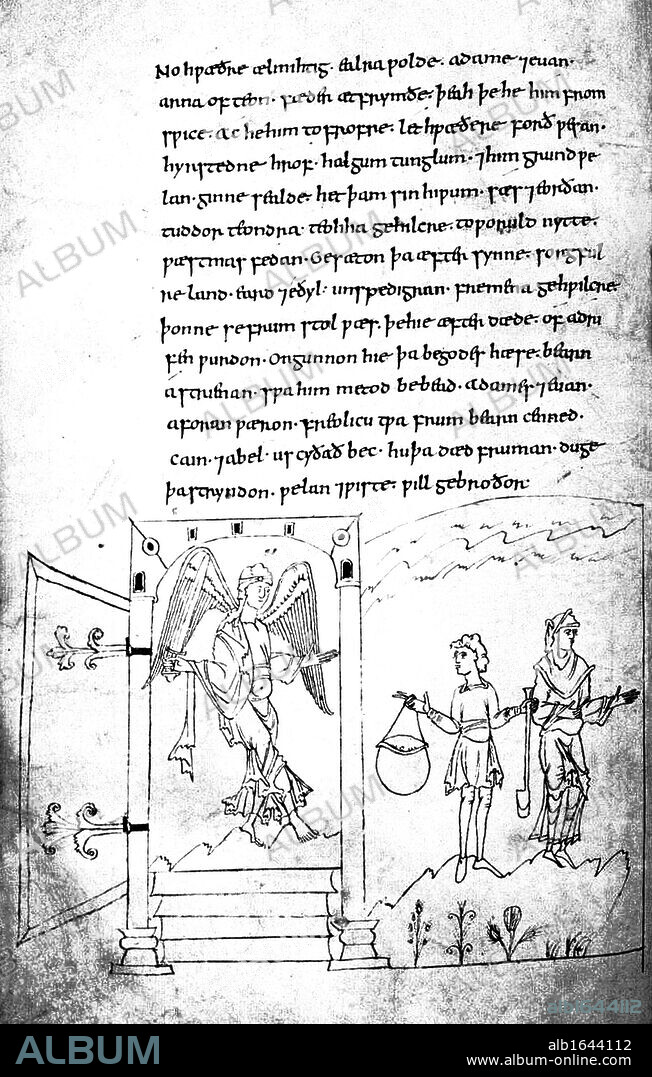 No hƿæðre ælmihtig· ealra ƿolde· adame ⁊ euan·
arna ofteon· fæder æt frymðe· þeah þe he him from
sƿice· ac he him to frofre· let hƿæðere forð ƿesan·
hyrstedne hrof· halgum tunglum· ⁊ him grund ƿe
lan· ginne sealde· het þam sin hiƿum· sæs ⁊ eorðan·
tuddor teondra· teohha gehƿilcre· to ƿoruld nytte·
ƿæstmas fedan· Gesæton þa æfter synne· sorgful
re land· eard ⁊ eðyl· unspedigran· fremena gehƿilcre
þonne se frum stol ƿæs· þe hie æfter dæde· of adri
fen ƿurdon· Ongunnon hie þa be godes hæse· bearn
astrienan· sƿa him metod bebead· adames ⁊ euan·
aforan ƿæron· freolicu tƿa frum bearn cenned·
cain· ⁊ abel· us cyðað bec· hu þa dæd fruman· duge
þa stryndon· ƿelan ⁊ ƿiste· ƿill gebroðor
ALBUM
alb1644112
ALBUM
alb1644112
www.album-online.com